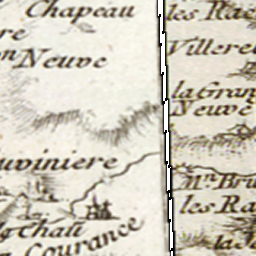 Chapeau
les
re
Villere
on Neuve
la Gran
Neuve
uviniere
Mn Bru
les Ra
Chau
Courance
la